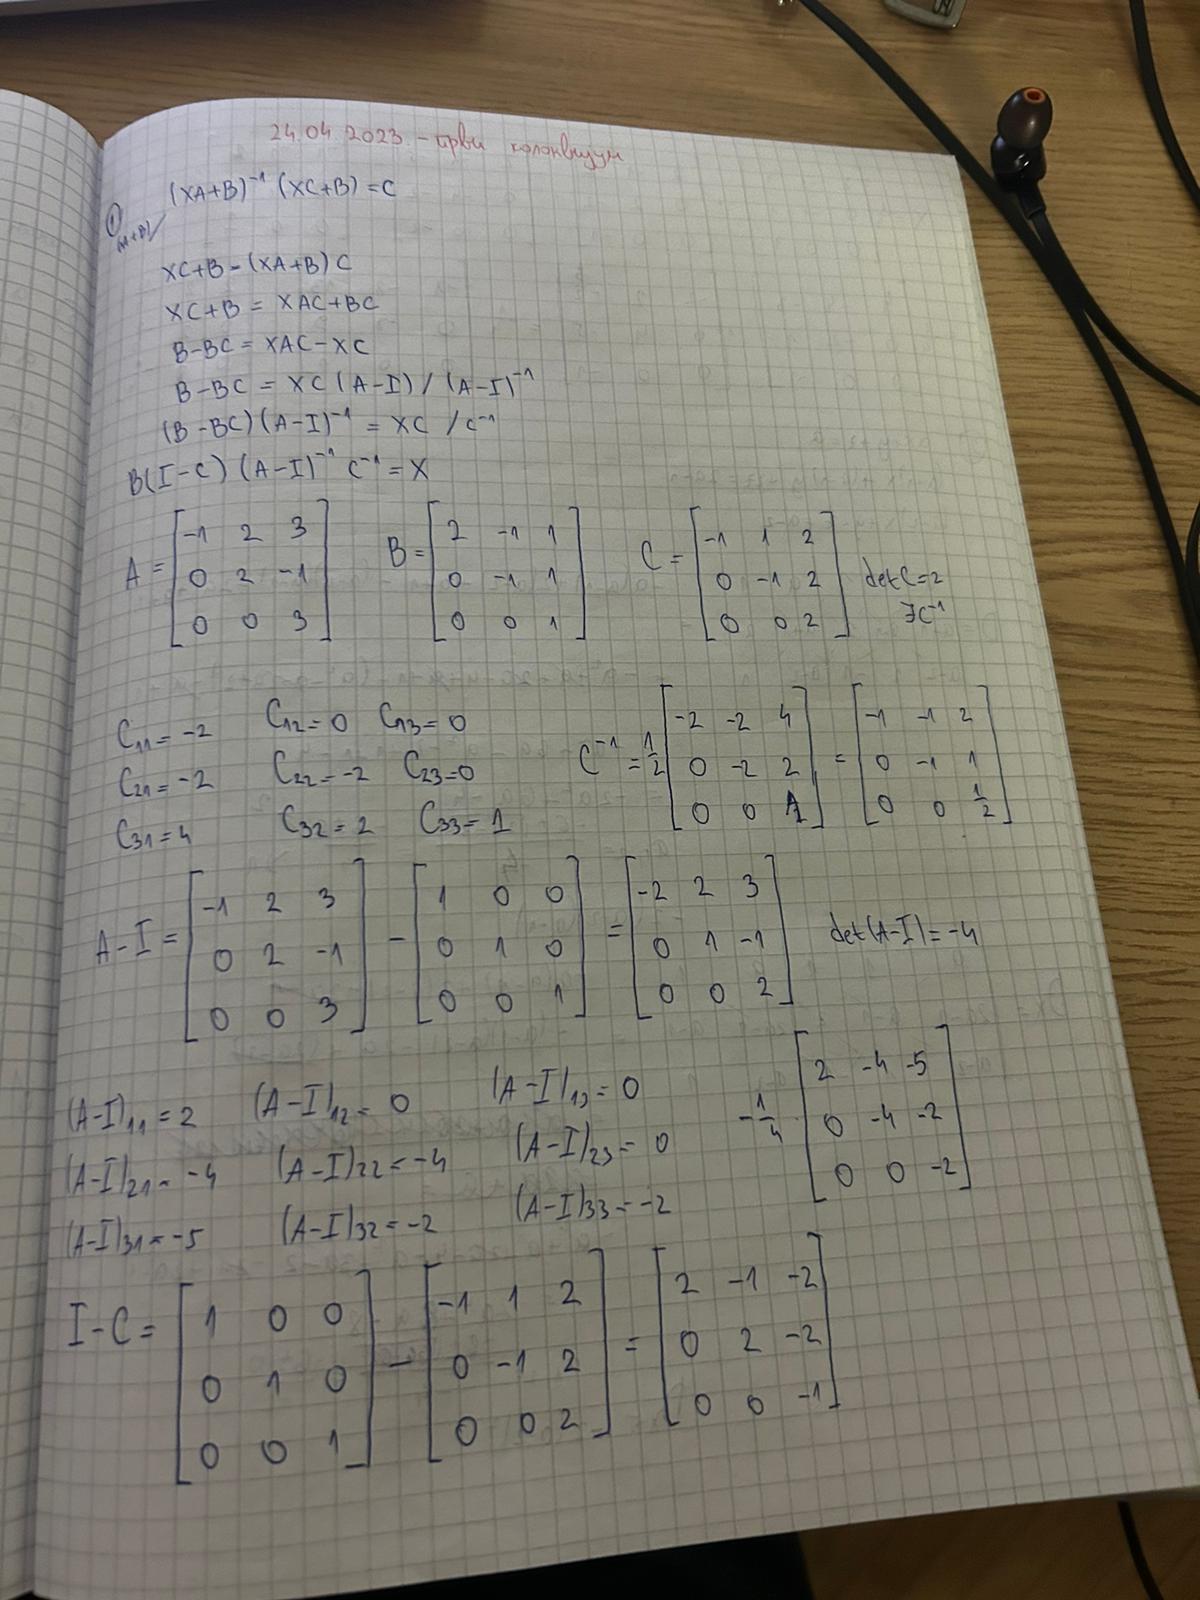 24.04.2023. - први колоквијум
① (XA+B)⁻¹ (XC+B) = C
(XA+B)/
XC+B = (XA+B) C
XC+B = XAC+BC
B-BC = XAC-XC
B-BC = XC (A-I) / (A-I)⁻¹
(B-BC)(A-I)⁻¹ = XC /C⁻¹
B(I-C) (A-I)⁻¹ C⁻¹ = X
A = [-1 2 3; 0 2 -1; 0 0 3] B = [2 -1 1; 0 -1 1; 0 0 1] C = [-1 1 2; 0 -1 2; 0 0 2] det C = 2
∃C⁻¹
C₁₁ = -2 C₁₂ = 0 C₁₃ = 0
C₂₁ = -2 C₂₂ = -2 C₂₃ = 0
C₃₁ = 4 C₃₂ = 2 C₃₃ = 1
C⁻¹ = 1/2 [-2 -2 4; 0 -2 2; 0 0 1] = [-1 -1 2; 0 -1 1; 0 0 1/2]
A-I = [-1 2 3; 0 2 -1; 0 0 3] - [1 0 0; 0 1 0; 0 0 1] = [-2 2 3; 0 1 -1; 0 0 2] det(A-I) = -4
(A-I)₁₁ = 2 (A-I)₁₂ = 0 (A-I)₁₃ = 0
(A-I)₂₁ = -4 (A-I)₂₂ = -4 (A-I)₂₃ = 0
(A-I)₃₁ = -5 (A-I)₃₂ = -2 (A-I)₃₃ = -2
-1/4 · [2 -4 -5; 0 -4 -2; 0 0 -2]
I-C = [1 0 0; 0 1 0; 0 0 1] - [-1 1 2; 0 -1 2; 0 0 2] = [2 -1 -2; 0 2 -2; 0 0 -1]